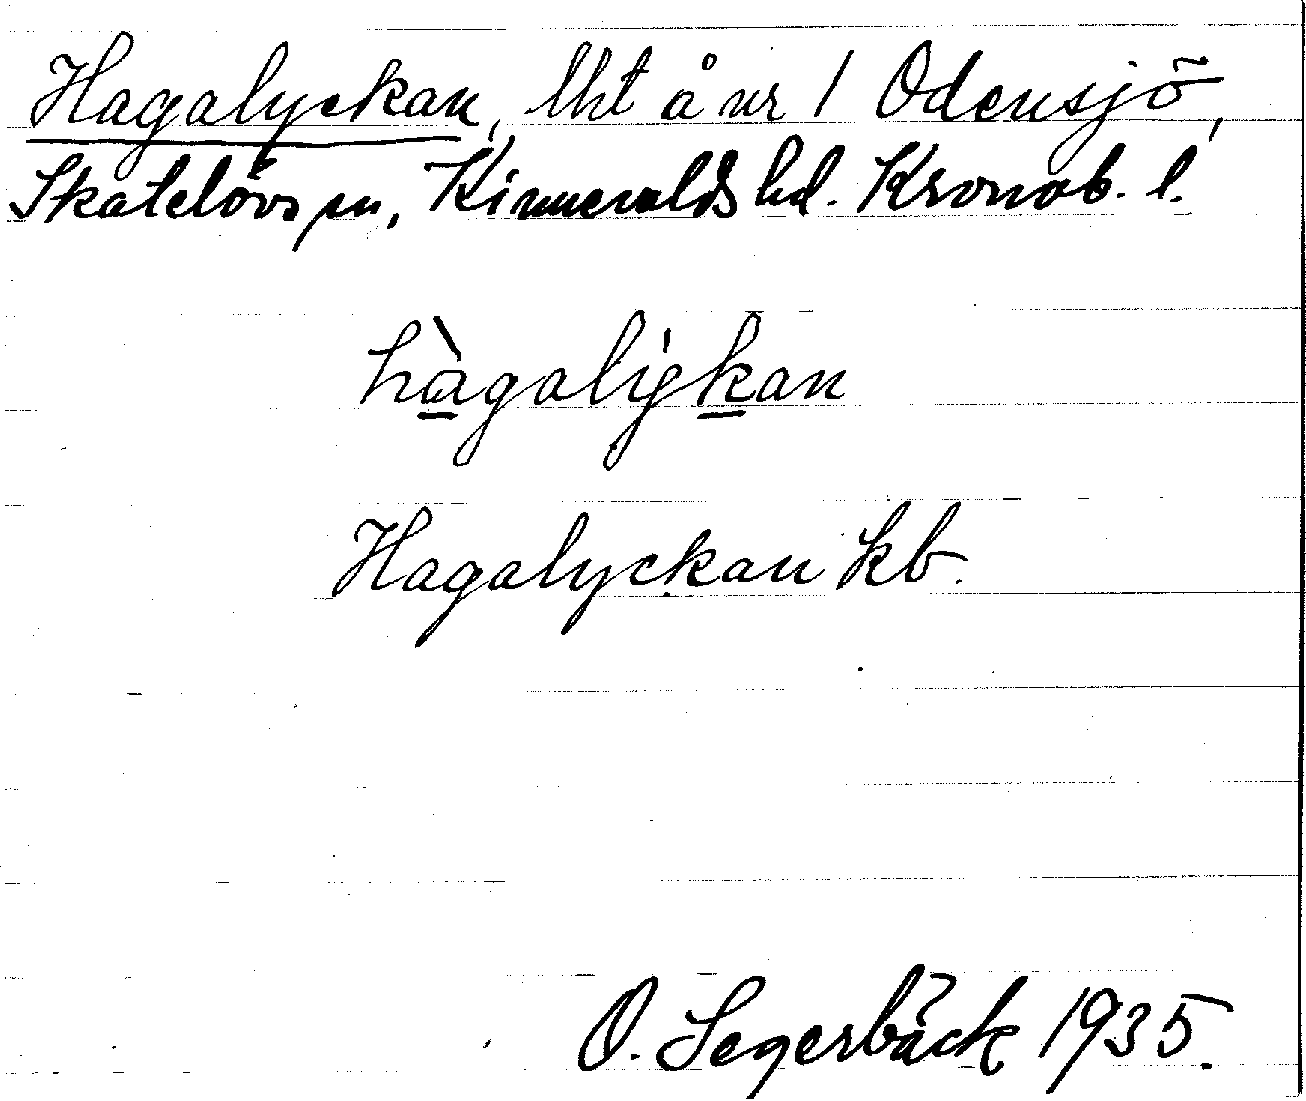 Hagalyckan, lht å nr 1 Odensjö,
Skatelövs sn, Kinnevalds hd. Kronob. l.
hàgalýkan
Hagalyckan kb.
O. Segerbäck 1935.